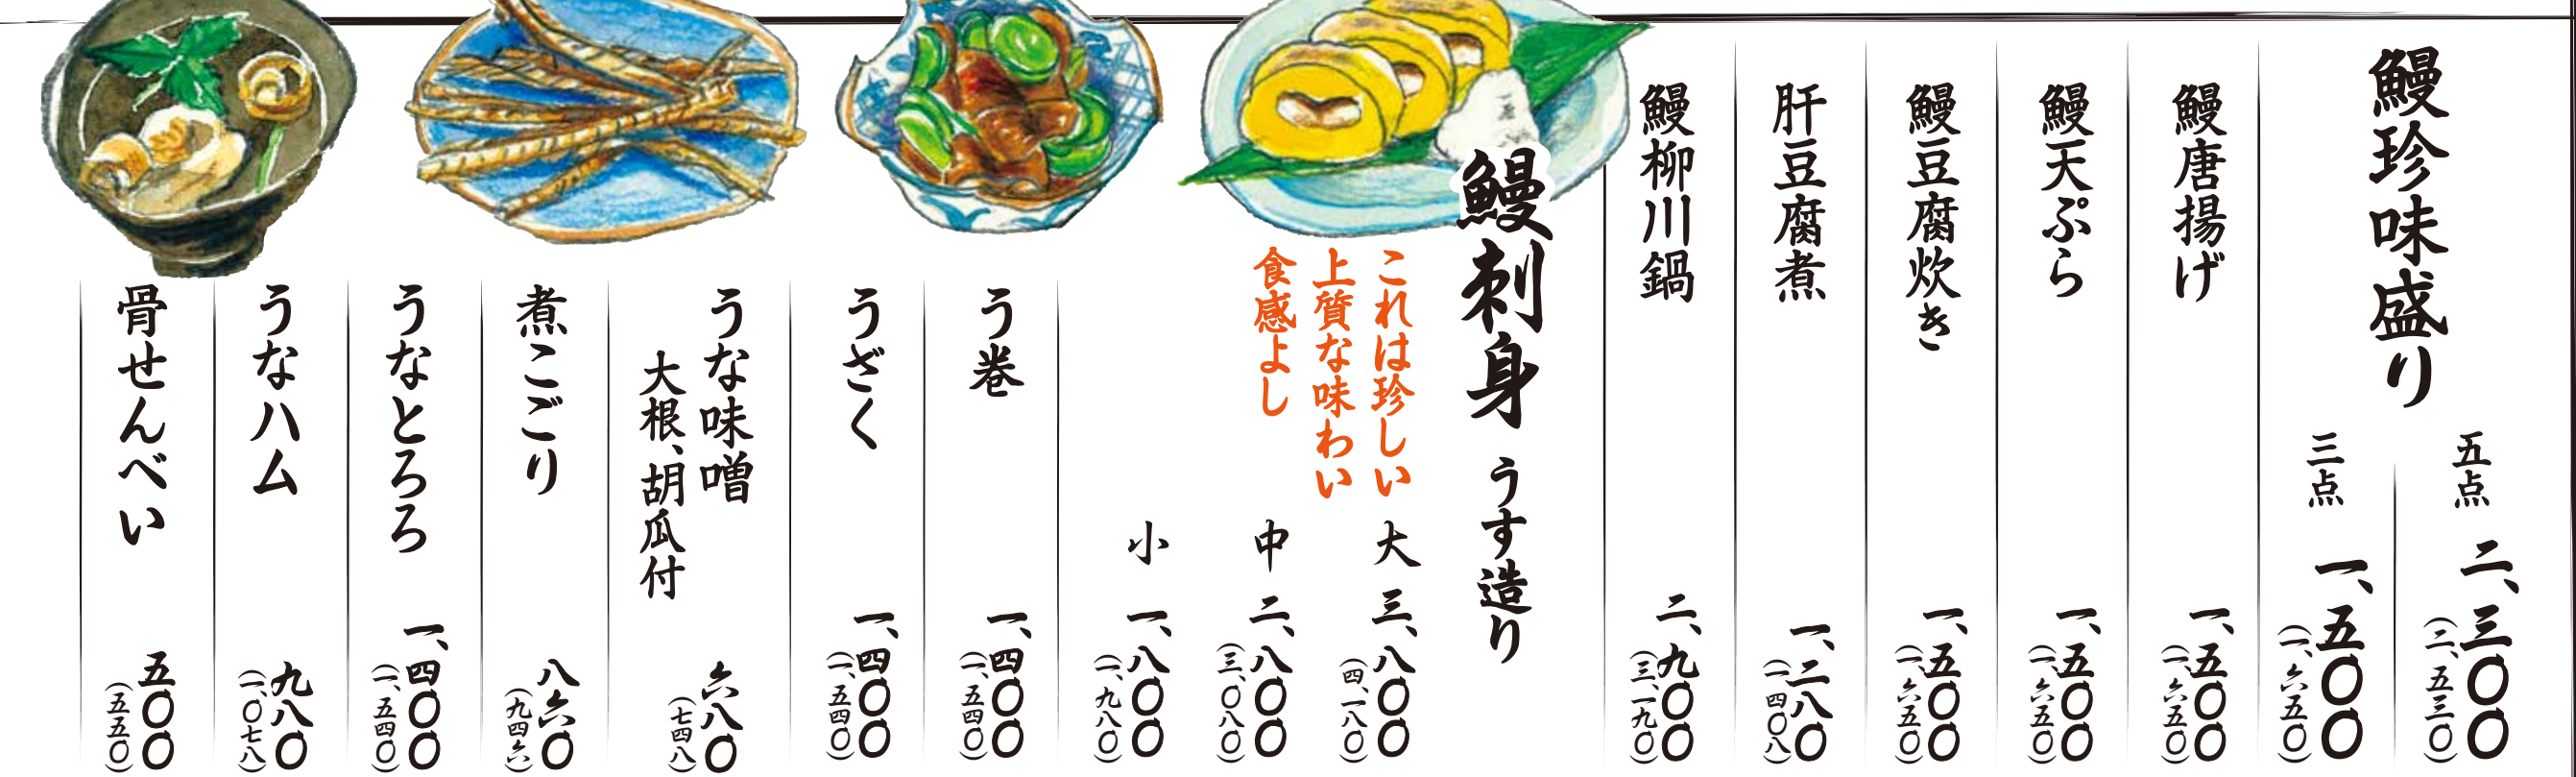 鰻珍味盛り
五点 二、三〇〇
(二、五三〇)
三点 一、五〇〇
(一、六五〇)
鰻唐揚げ 一、五〇〇
(一、六五〇)
鰻天ぷら 一、五〇〇
(一、六五〇)
鰻豆腐炊き 一、五〇〇
(一、六五〇)
肝豆腐煮 一、二八〇
(一、四〇八)
鰻柳川鍋 二、九〇〇
(三、一九〇)
鰻刺身 うす造り
これは珍しい
上質な味わい
食感よし
大 三、八〇〇
(四、一八〇)
中 二、八〇〇
(三、〇八〇)
小 一、八〇〇
(一、九八〇)
う巻 一、四〇〇
(一、五四〇)
うざく 一、四〇〇
(一、五四〇)
うな味噌
大根、胡瓜付
六八〇
(七四八)
煮こごり 八六〇
(九四六)
うなとろろ 一、四〇〇
(一、五四〇)
うなハム 九八〇
(一、〇七八)
骨せんべい 五〇〇
(五五〇)